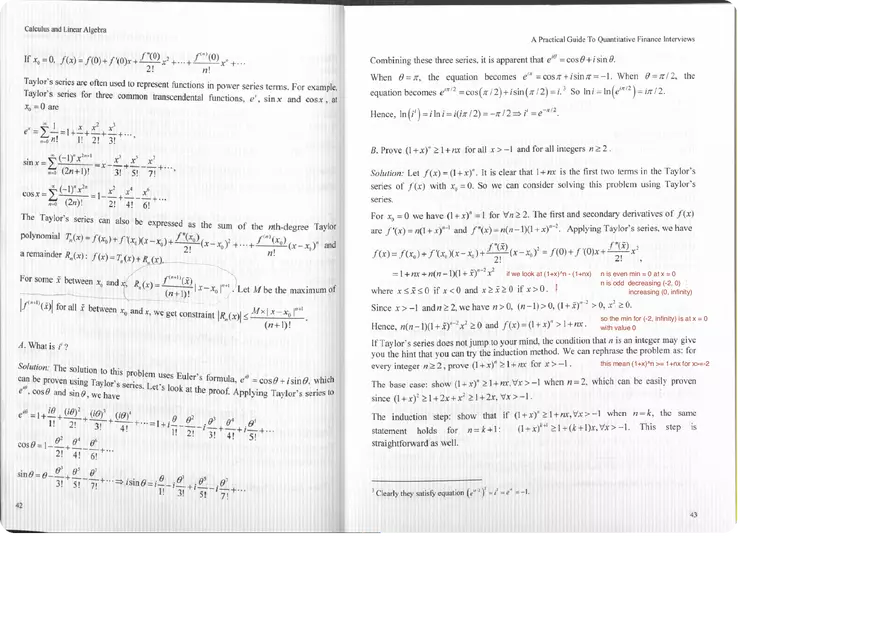 Calculus and Linear Algebra
If x₀ = 0, f(x) = f(0) + f'(0)x + f''(0)/2! x² + ⋯ + f⁽ⁿ⁾(0)/n! xⁿ + ⋯
Taylor's series are often used to represent functions in power series terms. For example,
Taylor's series for three common transcendental functions, eˣ, sin x and cos x, at
x₀ = 0 are
eˣ = ∑ₙ₌₀^∞ 1/n! = 1 + x/1! + x²/2! + x³/3! + ⋯,
sin x = ∑ₙ₌₀^∞ (−1)ⁿx²ⁿ⁺¹/(2n+1)! = x − x³/3! + x⁵/5! − x⁷/7! + ⋯,
cos x = ∑ₙ₌₀^∞ (−1)ⁿx²ⁿ/(2n)! = 1 − x²/2! + x⁴/4! − x⁶/6! + ⋯
The Taylor's series can also be expressed as the sum of the nth-degree Taylor
polynomial Tₙ(x) = f(x₀) + f'(x₀)(x − x₀) + f''(x₀)/2! (x − x₀)² + ⋯ + f⁽ⁿ⁾(x₀)/n! (x − x₀)ⁿ and
a remainder Rₙ(x): f(x) = Tₙ(x) + Rₙ(x).
For some x̃ between x₀ and x, Rₙ(x) = f⁽ⁿ⁺¹⁾(x̃)/(n+1)! |x − x₀|ⁿ⁺¹. Let M be the maximum of
|f⁽ⁿ⁺¹⁾(x̃)| for all x̃ between x₀ and x, we get constraint |Rₙ(x)| ≤ M×|x − x₀|ⁿ⁺¹/(n+1)!.
A. What is iⁱ ?
Solution: The solution to this problem uses Euler's formula, e^{iθ} = cos θ + i sin θ, which
can be proven using Taylor's series. Let's look at the proof. Applying Taylor's series to
e^{iθ}, cos θ and sin θ, we have
e^{iθ} = 1 + iθ/1! + (iθ)²/2! + (iθ)³/3! + (iθ)⁴/4! + ⋯ = 1 + i θ/1! − θ²/2! − i θ³/3! + θ⁴/4! + i θ⁵/5! + ⋯
cos θ = 1 − θ²/2! + θ⁴/4! − θ⁶/6! + ⋯
sin θ = θ − θ³/3! + θ⁵/5! − θ⁷/7! + ⋯ ⇒ i sin θ = i θ/1! − i θ³/3! + i θ⁵/5! − i θ⁷/7! + ⋯
42
A Practical Guide To Quantitative Finance Interviews
Combining these three series, it is apparent that e^{iθ} = cos θ + i sin θ.
When θ = π, the equation becomes e^{iπ} = cos π + i sin π = −1. When θ = π/2, the
equation becomes e^{iπ/2} = cos(π/2) + i sin(π/2) = i.³ So ln i = ln(e^{iπ/2}) = iπ/2.
Hence, ln(iⁱ) = i ln i = i(iπ/2) = −π/2 ⇒ iⁱ = e^{−π/2}.
B. Prove (1+x)ⁿ ≥ 1+nx for all x > −1 and for all integers n ≥ 2.
Solution: Let f(x) = (1+x)ⁿ. It is clear that 1+nx is the first two terms in the Taylor's
series of f(x) with x₀ = 0. So we can consider solving this problem using Taylor's
series.
For x₀ = 0 we have (1+x)ⁿ = 1 for ∀n ≥ 2. The first and secondary derivatives of f(x)
are f'(x) = n(1+x)ⁿ⁻¹ and f''(x) = n(n−1)(1+x)ⁿ⁻². Applying Taylor's series, we have
f(x) = f(x₀) + f'(x₀)(x − x₀) + f''(x̃)/2! (x − x₀)² = f(0) + f'(0)x + f''(x̃)/2! x²,
= 1 + nx + n(n−1)(1+x̃)ⁿ⁻²x² if we look at (1+x)^n - (1+nx) n is even min = 0 at x = 0
n is odd decreasing (-2, 0)
where x ≤ x̃ ≤ 0 if x < 0 and x ≥ x̃ ≥ 0 if x > 0. increasing (0, infinity)
Since x > −1 and n ≥ 2, we have n > 0, (n−1) > 0, (1+x̃)ⁿ⁻² > 0, x² ≥ 0.
so the min for (-2, infinity) is at x = 0
with value 0
Hence, n(n−1)(1+x̃)ⁿ⁻²x² ≥ 0 and f(x) = (1+x)ⁿ > 1+nx.
If Taylor's series does not jump to your mind, the condition that n is an integer may give
you the hint that you can try the induction method. We can rephrase the problem as: for
every integer n ≥ 2, prove (1+x)ⁿ ≥ 1+nx for x > −1. this mean (1+x)^n >= 1+nx for x>=-2
The base case: show (1+x)ⁿ ≥ 1+nx, ∀x > −1 when n = 2, which can be easily proven
since (1+x)² ≥ 1+2x+x² ≥ 1+2x, ∀x > −1.
The induction step: show that if (1+x)ⁿ ≥ 1+nx, ∀x > −1 when n = k, the same
statement holds for n = k+1: (1+x)ᵏ⁺¹ ≥ 1+(k+1)x, ∀x > −1. This step is
straightforward as well.